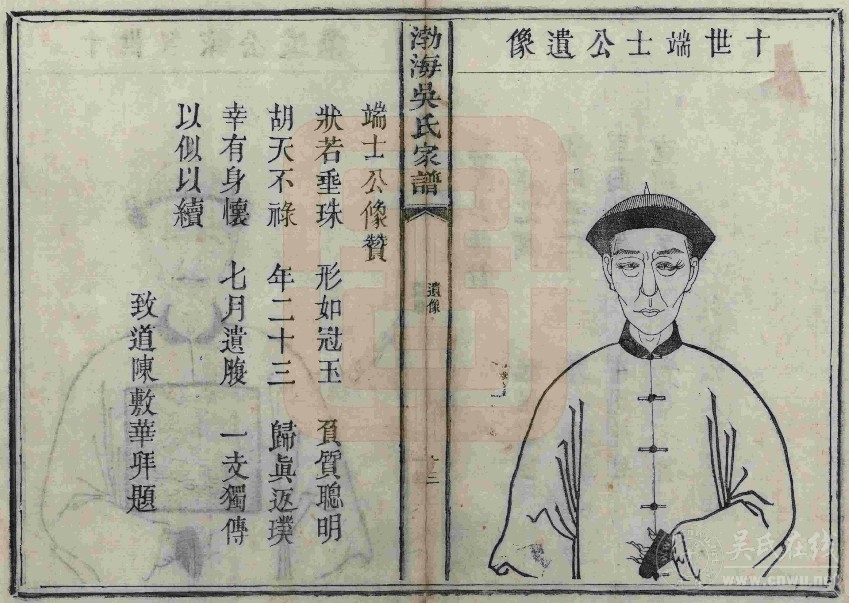 十世端士公遺像
渤海吳氏家譜
遺像
端士公像贊
狀若垂珠 形如冠玉 負質聰明
胡天不祿 年二十三 歸眞返璞
幸有身懷 七月遺腹 一支獨傳
以似以續
致道陳敷華拜題
吴氏在线
www.cnwu.net